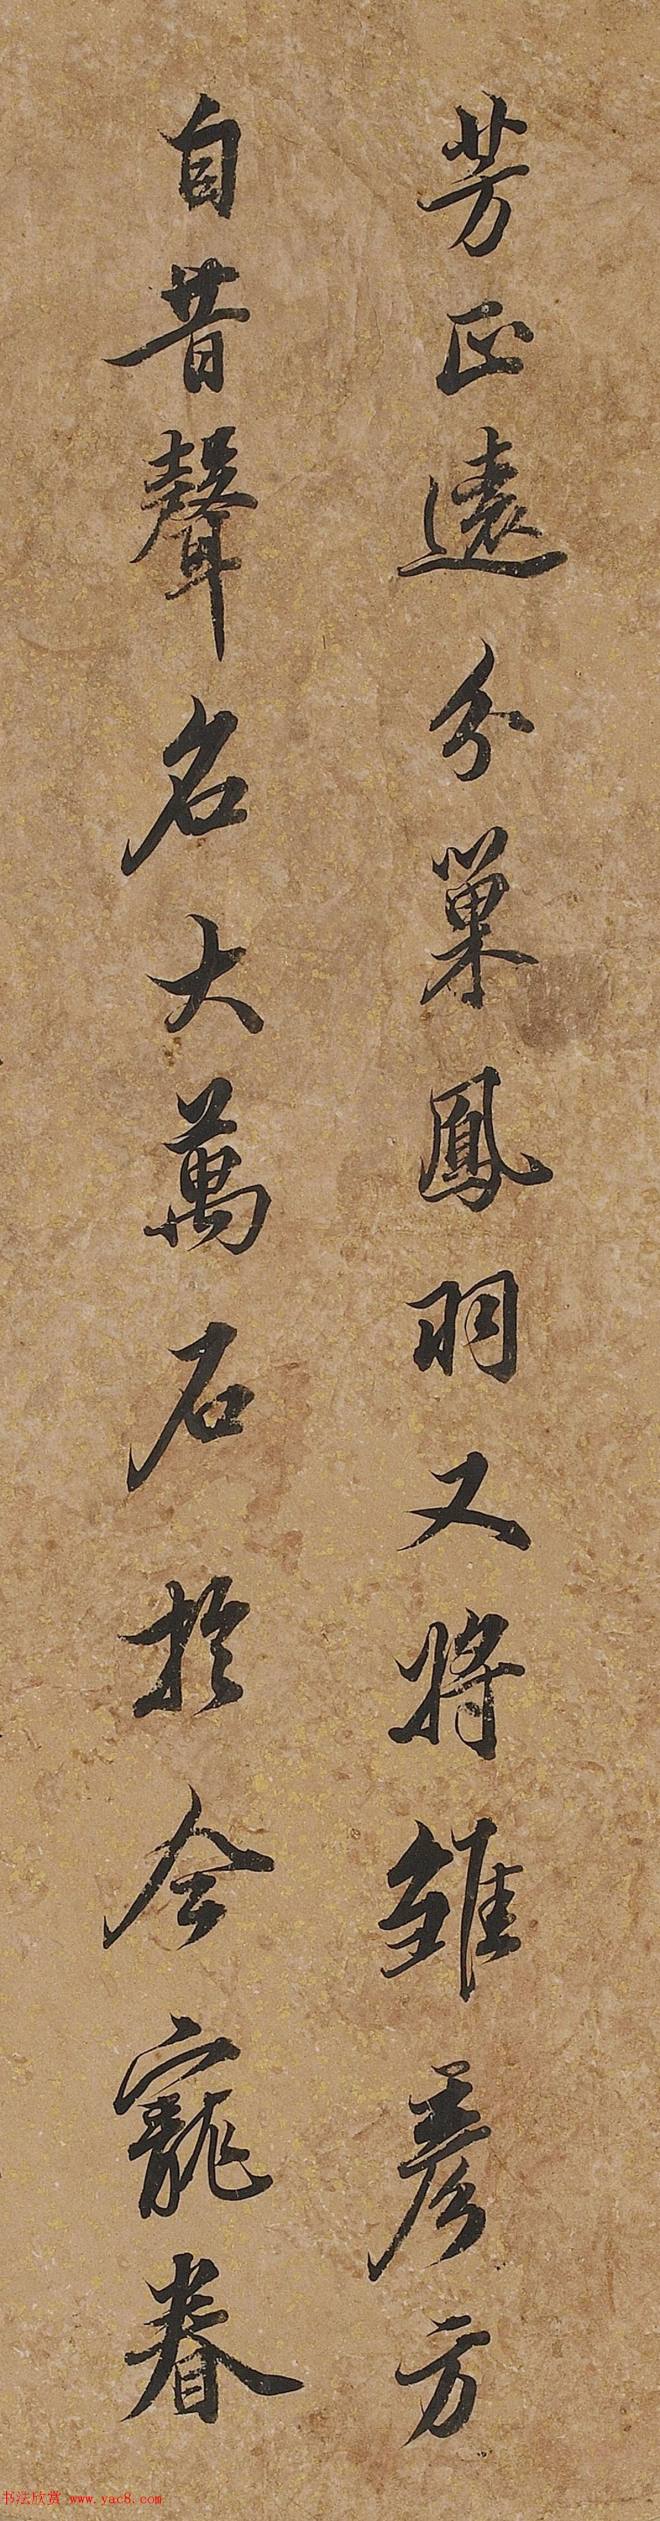 芳正遠分巢鳳羽又將雛彦方
自昔聲名大萬石於今寵眷
书法欣赏 www.yac8.com